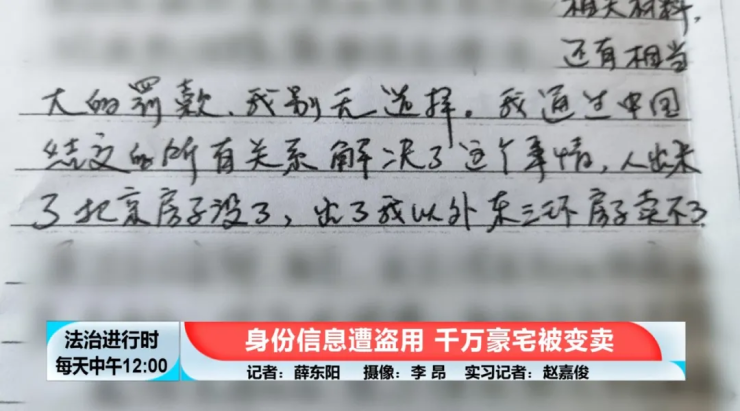 相关材料,
还有相当
大的罚款、我别无选择。我通过中国
结交的所有关系解决了这个事情,人出来
了北京房子没了,出了我以外东三环房子卖不了
法治进行时
每天中午12:00
身份信息遭盗用 千万豪宅被变卖
记者:薛东阳 摄像:李 昂 实习记者:赵嘉俊